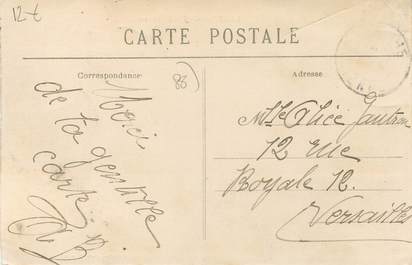 12-€
CARTE POSTALE
Correspondance
Adresse
Merci
de ta gentille
carte
Mlle Alice
12 rue
Royale 12.
Versailles